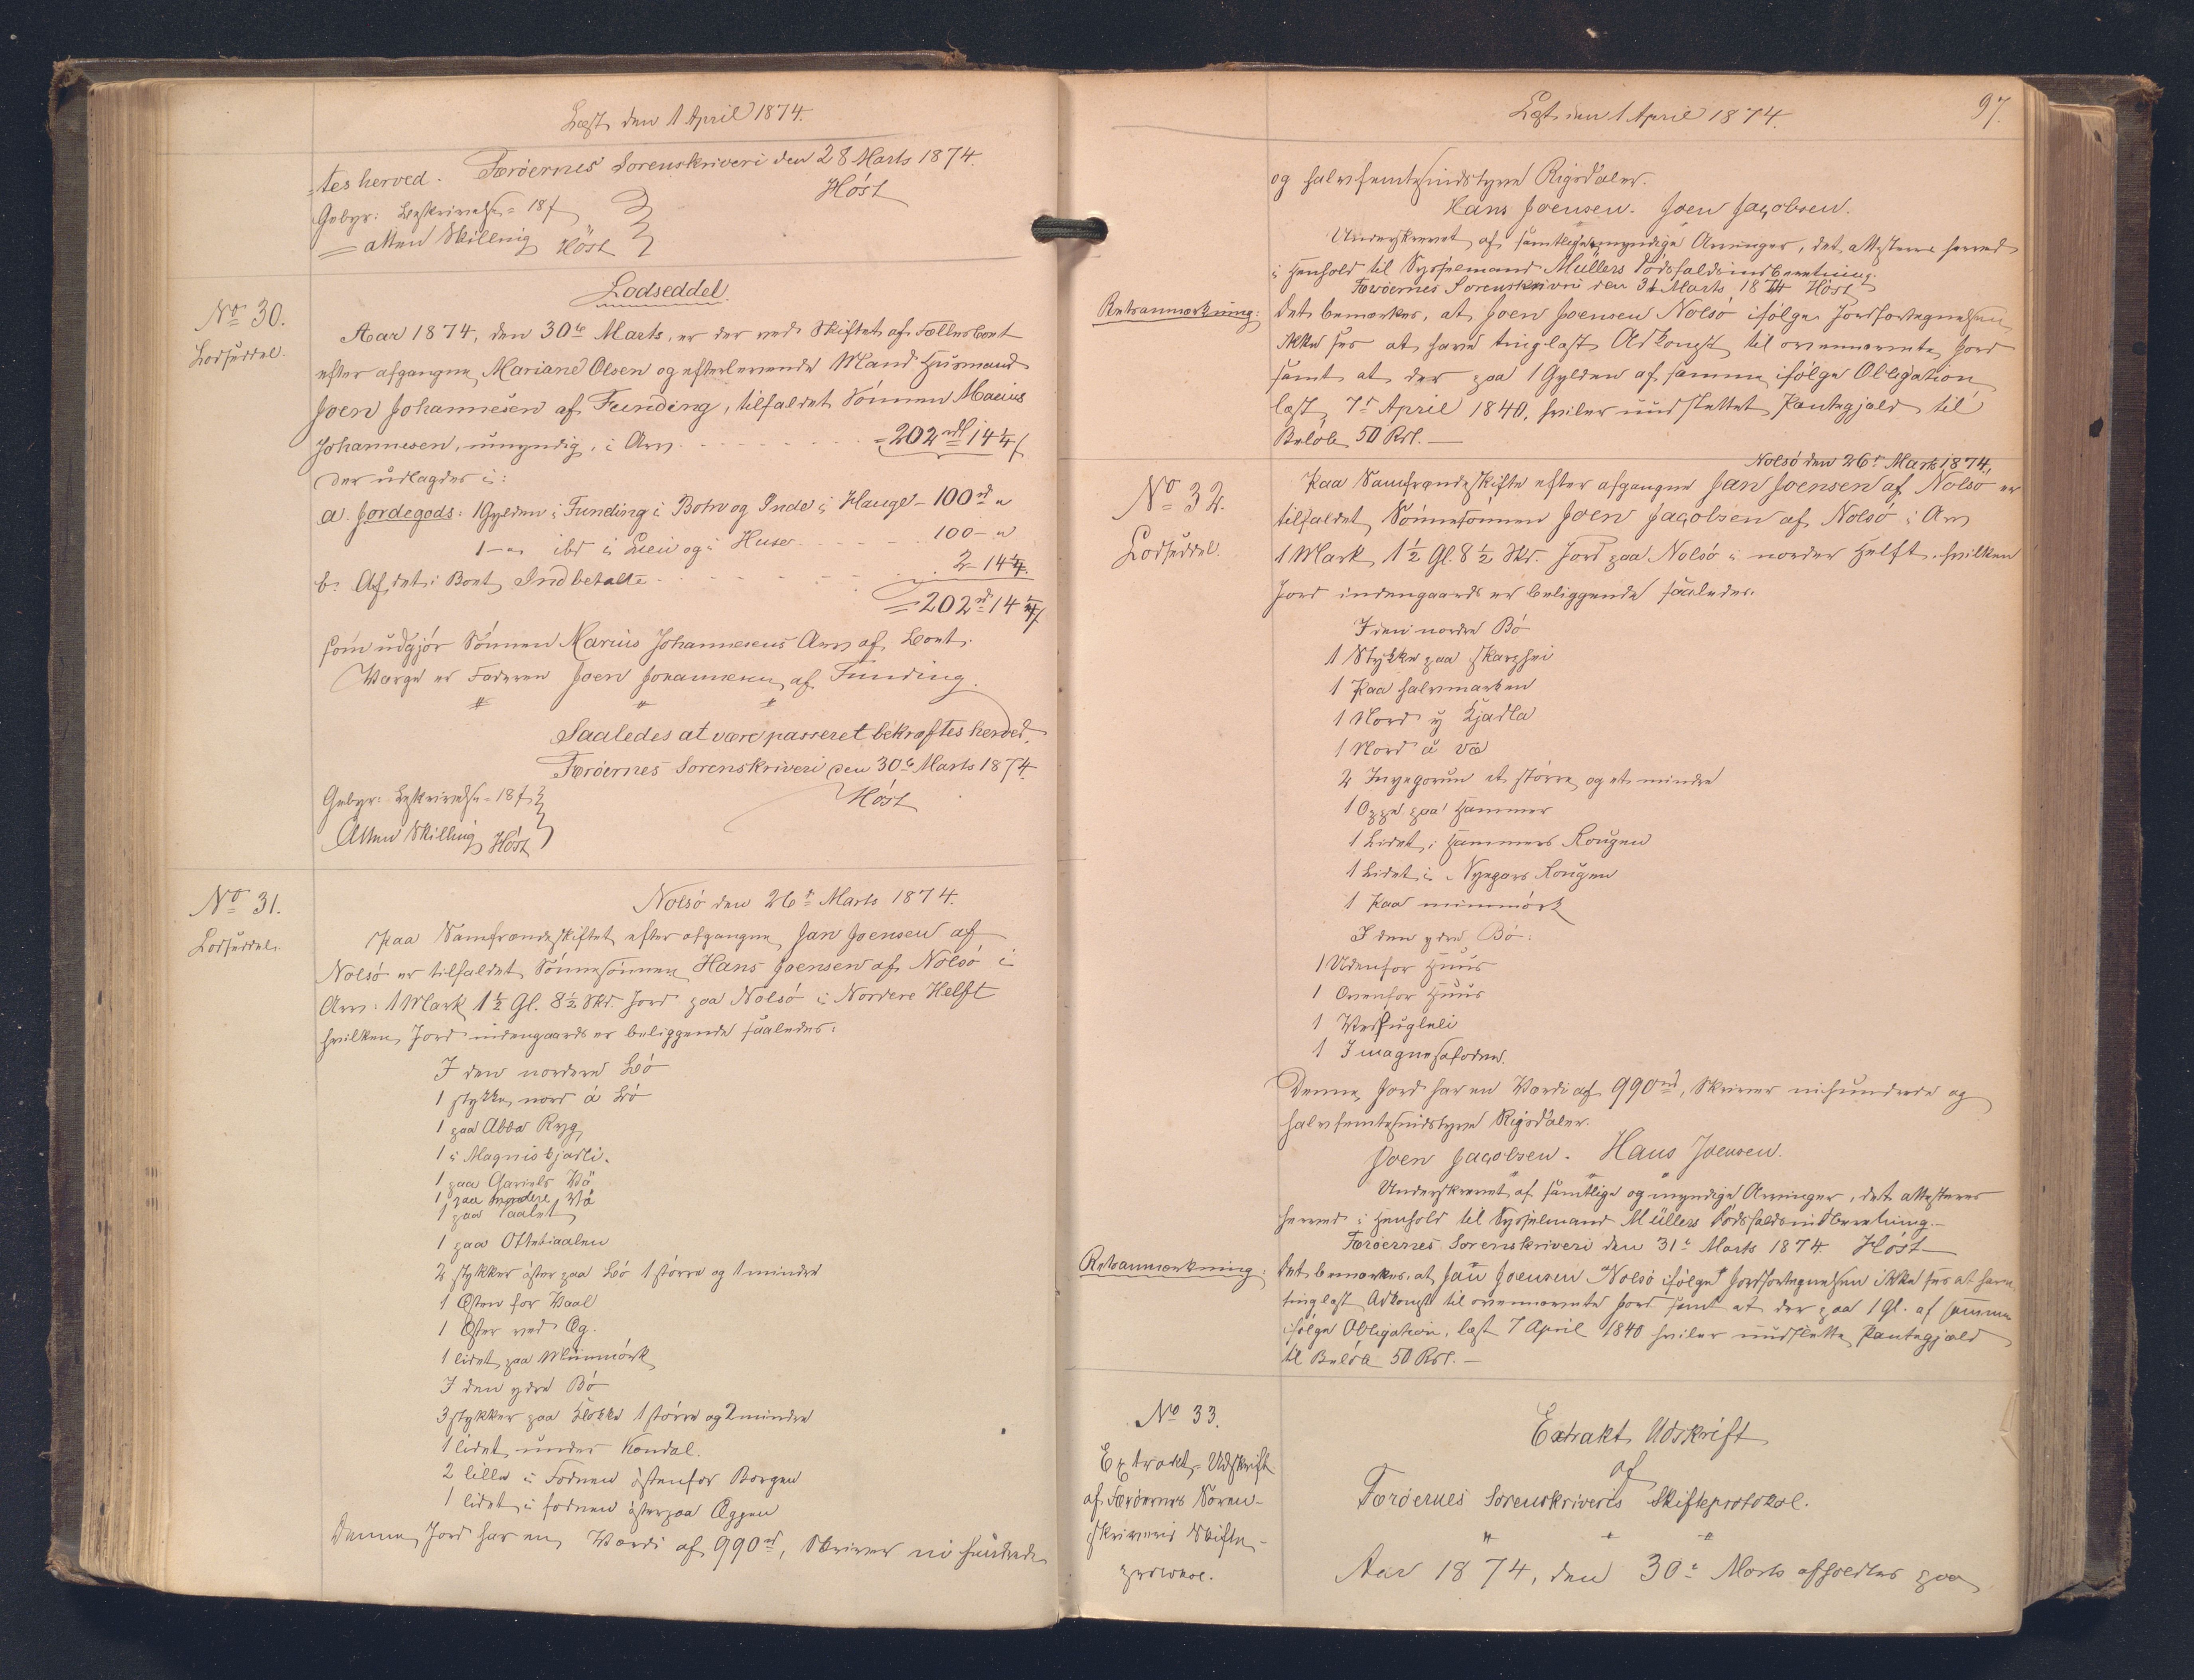 Læst den 1 April 1874.
=tes herved. Færöernes Sorenskriveri den 28 Marts 1874.
Höst
Gebyr: Beskrivelse = 18 ß
= atten Skilling Höst
Lodseddel.
No 30.
Lodseddel.
Aar 1874, den 30te Marts, er der ved Skiftet af Fællesboet
efter afgangne Mariane Olsen og efterlevende Mand Huusmand
Joen Johannesen af Funding, tilfaldet Sönnen Marius
Johannesen, umyndig, i Arv - - - = 202 rdl 14 1/4 ß
der udlagdes i:
a. Jordegods: 1 Gylden i Funding i Botn og Inde i Hauge - 100 rd "
1 - " ibd i Lien og i Huse - - - 100 - "
b. Af det i Boet Indbetalte - - - 2 - 14 1/4.
= 202 rd 14 1/4 ß
som udgjör Sönnen Marius Johannesens Arv af Boet.
Værge er Faderen Joen Johannesen af Funding.
Saaledes at være passeret bekræftes herved.
Færöernes Sorenskriveri den 30te Marts 1874.
Höst
Gebyr: Beskrivelse = 18 ß
Atten Skilling Höst
No 31.
Lodseddel.
Nolsö den 26de Marts 1874.
Paa Samfrændeskiftet efter afgangne Jan Joensen af
Nolsö er tilfaldet Sönnesönnen Hans Joensen af Nolsö i
Arv: 1 Mark 1 1/2 Gl. 8 1/2 Skd. Jord paa Nolsö i Nordere Helft
hvilken Jord indengaards er beliggende saaledes:
I den nordere Bö
1 stykke nord á Bö
1 paa Abba Ryg
1 i Magniskjadli.
1 paa Gariels Vö
1 paa nordere Vö
1 paa
1 paa
2 stykker öster paa Bö 1 större og 1 mindre
1 Östen for Waal
1 Öster ved Æg.
1 lidet paa Minnmörk
I den ydre Bö
3 stykker paa 1 större og 2 mindre
1 lidet under Kondal.
2 lille i Fodnen östenfor Borgen
1 lidet i fodnen öster paa Æggen
Denne Jord har en Værdi af 990 rd, Skriver ni hundrede
Læst den 1 April 1874.
97.
og halvfemtesindstyve Rigsdaler.
Hans Joensen. Joen Jacobsen.
Underskrevet af samtlige myndige Arvinger, det attesteres herved
i Henhold til Sysselmand Müllers Dödsfaldsindberetning.
Færöernes Sorenskriveri den 31 Marts 1874 Höst
Retsanmærkning:
Det bemærkes, at Joen Joensen Nolsö ifölge Jordfortegnelsen
ikke ses at have tinglæst Adkomst til ovennævnte Jord
samt at der paa 1 Gylden af samme ifölge Obligation
læst 7de April 1840, hviler uudslettet Pantegjæld til
Belöb 50 Rdl. —
No 32.
Lodseddel.
Nolsö den 26de Marts 1874.
Paa Samfrændeskifte efter afgangne Jan Joensen af Nolsö er
tilfaldet Sönnesönnen Joen Jacobsen af Nolsö i Arv
1 Mark 1 1/2 Gl. 8 1/2 Skd. Jord paa Nolsö i norder Helft, hvilken
Jord indengaards er beliggende saaledes.
I den nordre Bö
1 Stykke paa Skarphei
1 Paa halvmarken
1 Nord y Kjadla
1 Nord á Vö
2 et större og et mindre
1 Oppe paa Hammer
1 Lidet i Hammers Kougen
1 Lidet i Nyegars Kougen
1 Paa minnmörk
I den ydre Bö:
1 Udenfor Huus
1 Ovenfor Huus
1 Ved fugleli
1 I magnesafodne.
Denne Jord har en Værdi af 990 rd, Skriver nihundrede og
halvfemtesindstyve Rigsdaler.
Joen Jacobsen. Hans Joensen.
Underskrevet af samtlige og myndige Arvinger, det attesteres
herved i Henhold til Sysselmand Müllers Dödsfaldsindberetning. —
Færöernes Sorenskriveri den 31te Marts 1874. Höst
Retsanmærkning:
Det bemærkes, at Jan Joensen Nolsö ifölge Jordfortegnelsen ikke ses at have
tinglæst Adkomst til ovennævnte Jord samt at der paa 1 Gl. af samme
ifölge Obligation, læst 7 April 1840 hviler uudslettet Pantegjæld
til Belöb 50 Rdl. —
No 33.
Extrakt-Udskrift
af Færöernes Soren-
skriveris Skifte-
protokol.
Extrakt Udskrift
af
Færöernes Sorenskriveris Skifteprotokol.
Aar 1874, den 30te Marts afholdtes paa